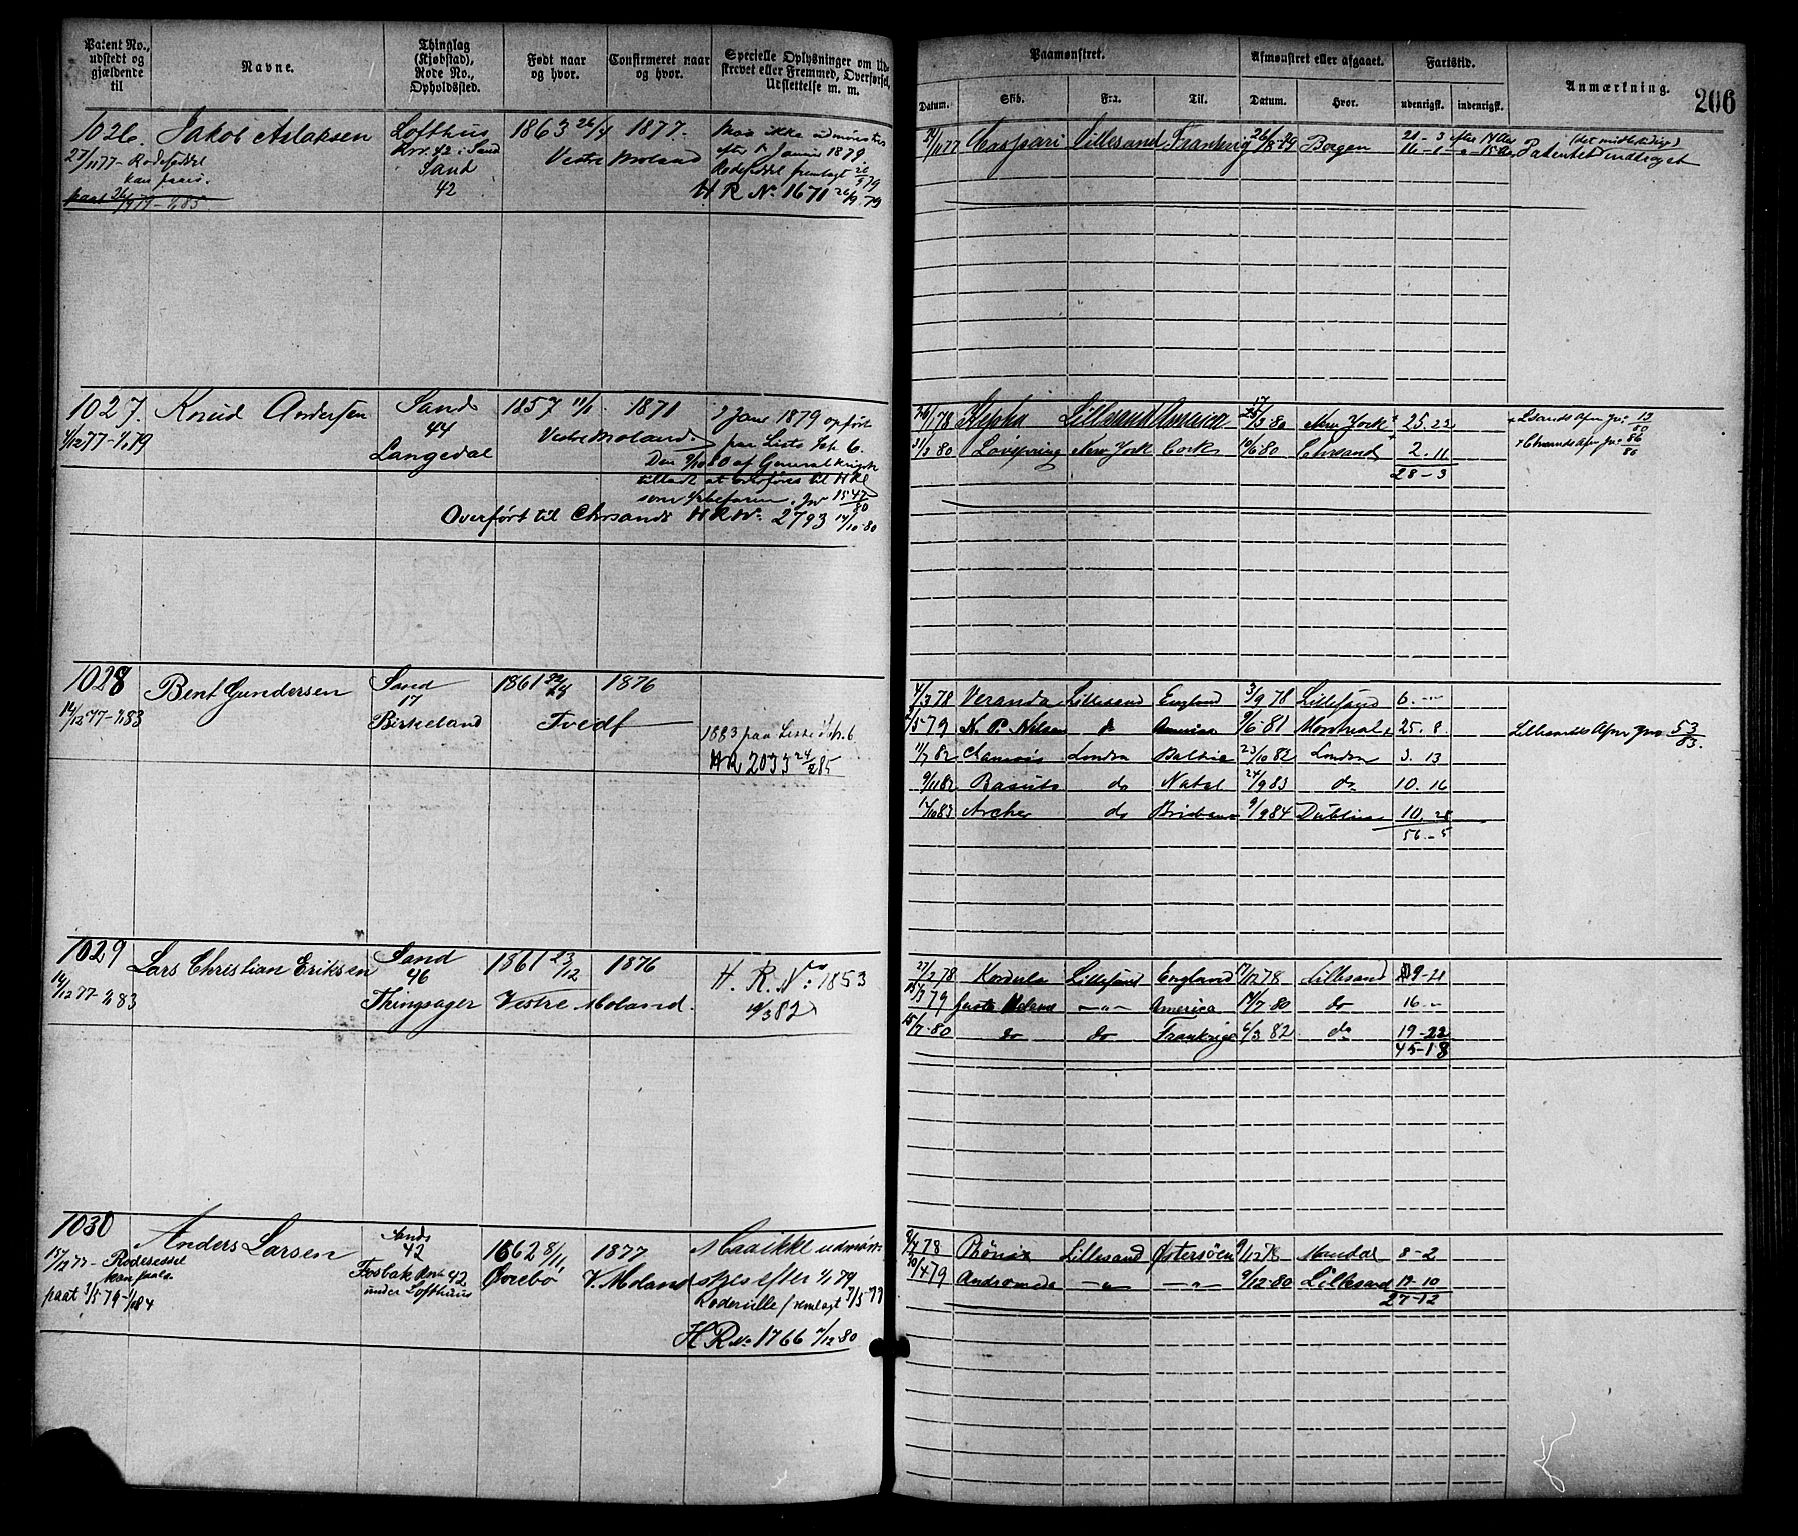 Patent No., udstedt og gjældende til
Navne.
Thinglag (Kjøbstad), Rode No., Opholdssted.
Født naar og hvor.
Confirmeret naar og hvor.
Specielle Oplysninger om Udskrevet eller Fremmed, Overførsel, Udslettelse m. m.
Paamønstret.
Datum. Skib. Fra. Til.
Afmønstret eller afgaaet.
Datum. Hvor.
Fartstid.
udenrigsk. indenrigsk.
Anmærkning.
206
1026. Jakob Aslaksen
27/11 77 - Rodeseddel
kan paaes.
Lofthus
No. 42 i Sand
Sand
42
1863 26/4 1877.
Vestre Moland
Maa ikke udmønstres
efter 1 Januar 1879.
Rodeseddel fremlagt 26/9 79
H R N. 1671 26/9. 79
Caspari Lillesand Frankrig 26/8 79 Bergen
Patentet inddraget
1027. Knud Andersen
4/12 77 - 1/1 79
Sand
44
Langedal
1857 11/1 1871
Vestre Moland.
1 Janr 1879 opført
paa Liste Lit. 6.
Den 9/10 80 af Generalkrigsk.
tilladt at overføres til H Rl
som Ubefaren. Jnr 1547/80
Overført til Chrsands H R N. 2793 14/10 80
Kepha Lillesand America New York + 25. 22
31/3 80 New York Cork 10/6 80 Chrsand + 2. 11
28 - 3
+ Lsands Afm Jnr 13/80
+ Chrsands Afm Jnr 86/80
1028 Bent Gundersen
14/12 77 - 1/1 83
Sand
17
Birkeland
1861 1876
Tvedt
1883 paa Liste Lit. 6
HR 2033 24/2 85
4/3 78 Veranda Lillesand England 3/9 78 Lillesand 6. -
/5 79 N. P. Nilsen do America 9/6 81 Montreal + 25. 8
11/7 82 London Baltic 23/10 82 London 3. 13
9/11 82 Basuto do Natal 24/9 83 do 10. 16
Archer do Brisbane 9/9 84 Dublin 10. 28
56 - 5
Lillesands Afm Jnr. 53/83.
1029 Lars Christian Eriksen
14/12 77 - 1/1 83
Sand
46
Thingsager
1861 23/12 1876
Vestre Moland.
H. R. No: 1853
14/3 82
27/2 78 Kordula Lillesand England 17/12 78 Lillesand 9 - 21
15/3 79 America 14/7 80 do 16 -
15/7 80 do do Frankrige 6/3 82 do 19 - 22
45 - 18
1030 Anders Larsen
15/12 77 - Rodeseddel
kan paaes
paat 3/5 79 - 1/1 84
Sands
42
Fosbæk Rode 42
under Lofthuus
1862 8/11 1877
Øvrebø V. Moland
Maa ikke udmøn-
stres efter 1/1 79
Rodesedle fremlagt 3/5 79
H. R No 1766 9/12 80
9/4 78 Phønix Lillesand Østersøen 9/12 78 Mandal 8 - 2
30/4 79 Andromeda - " - - " - 9/12 80 Lillesand 19 - 10
27 - 12